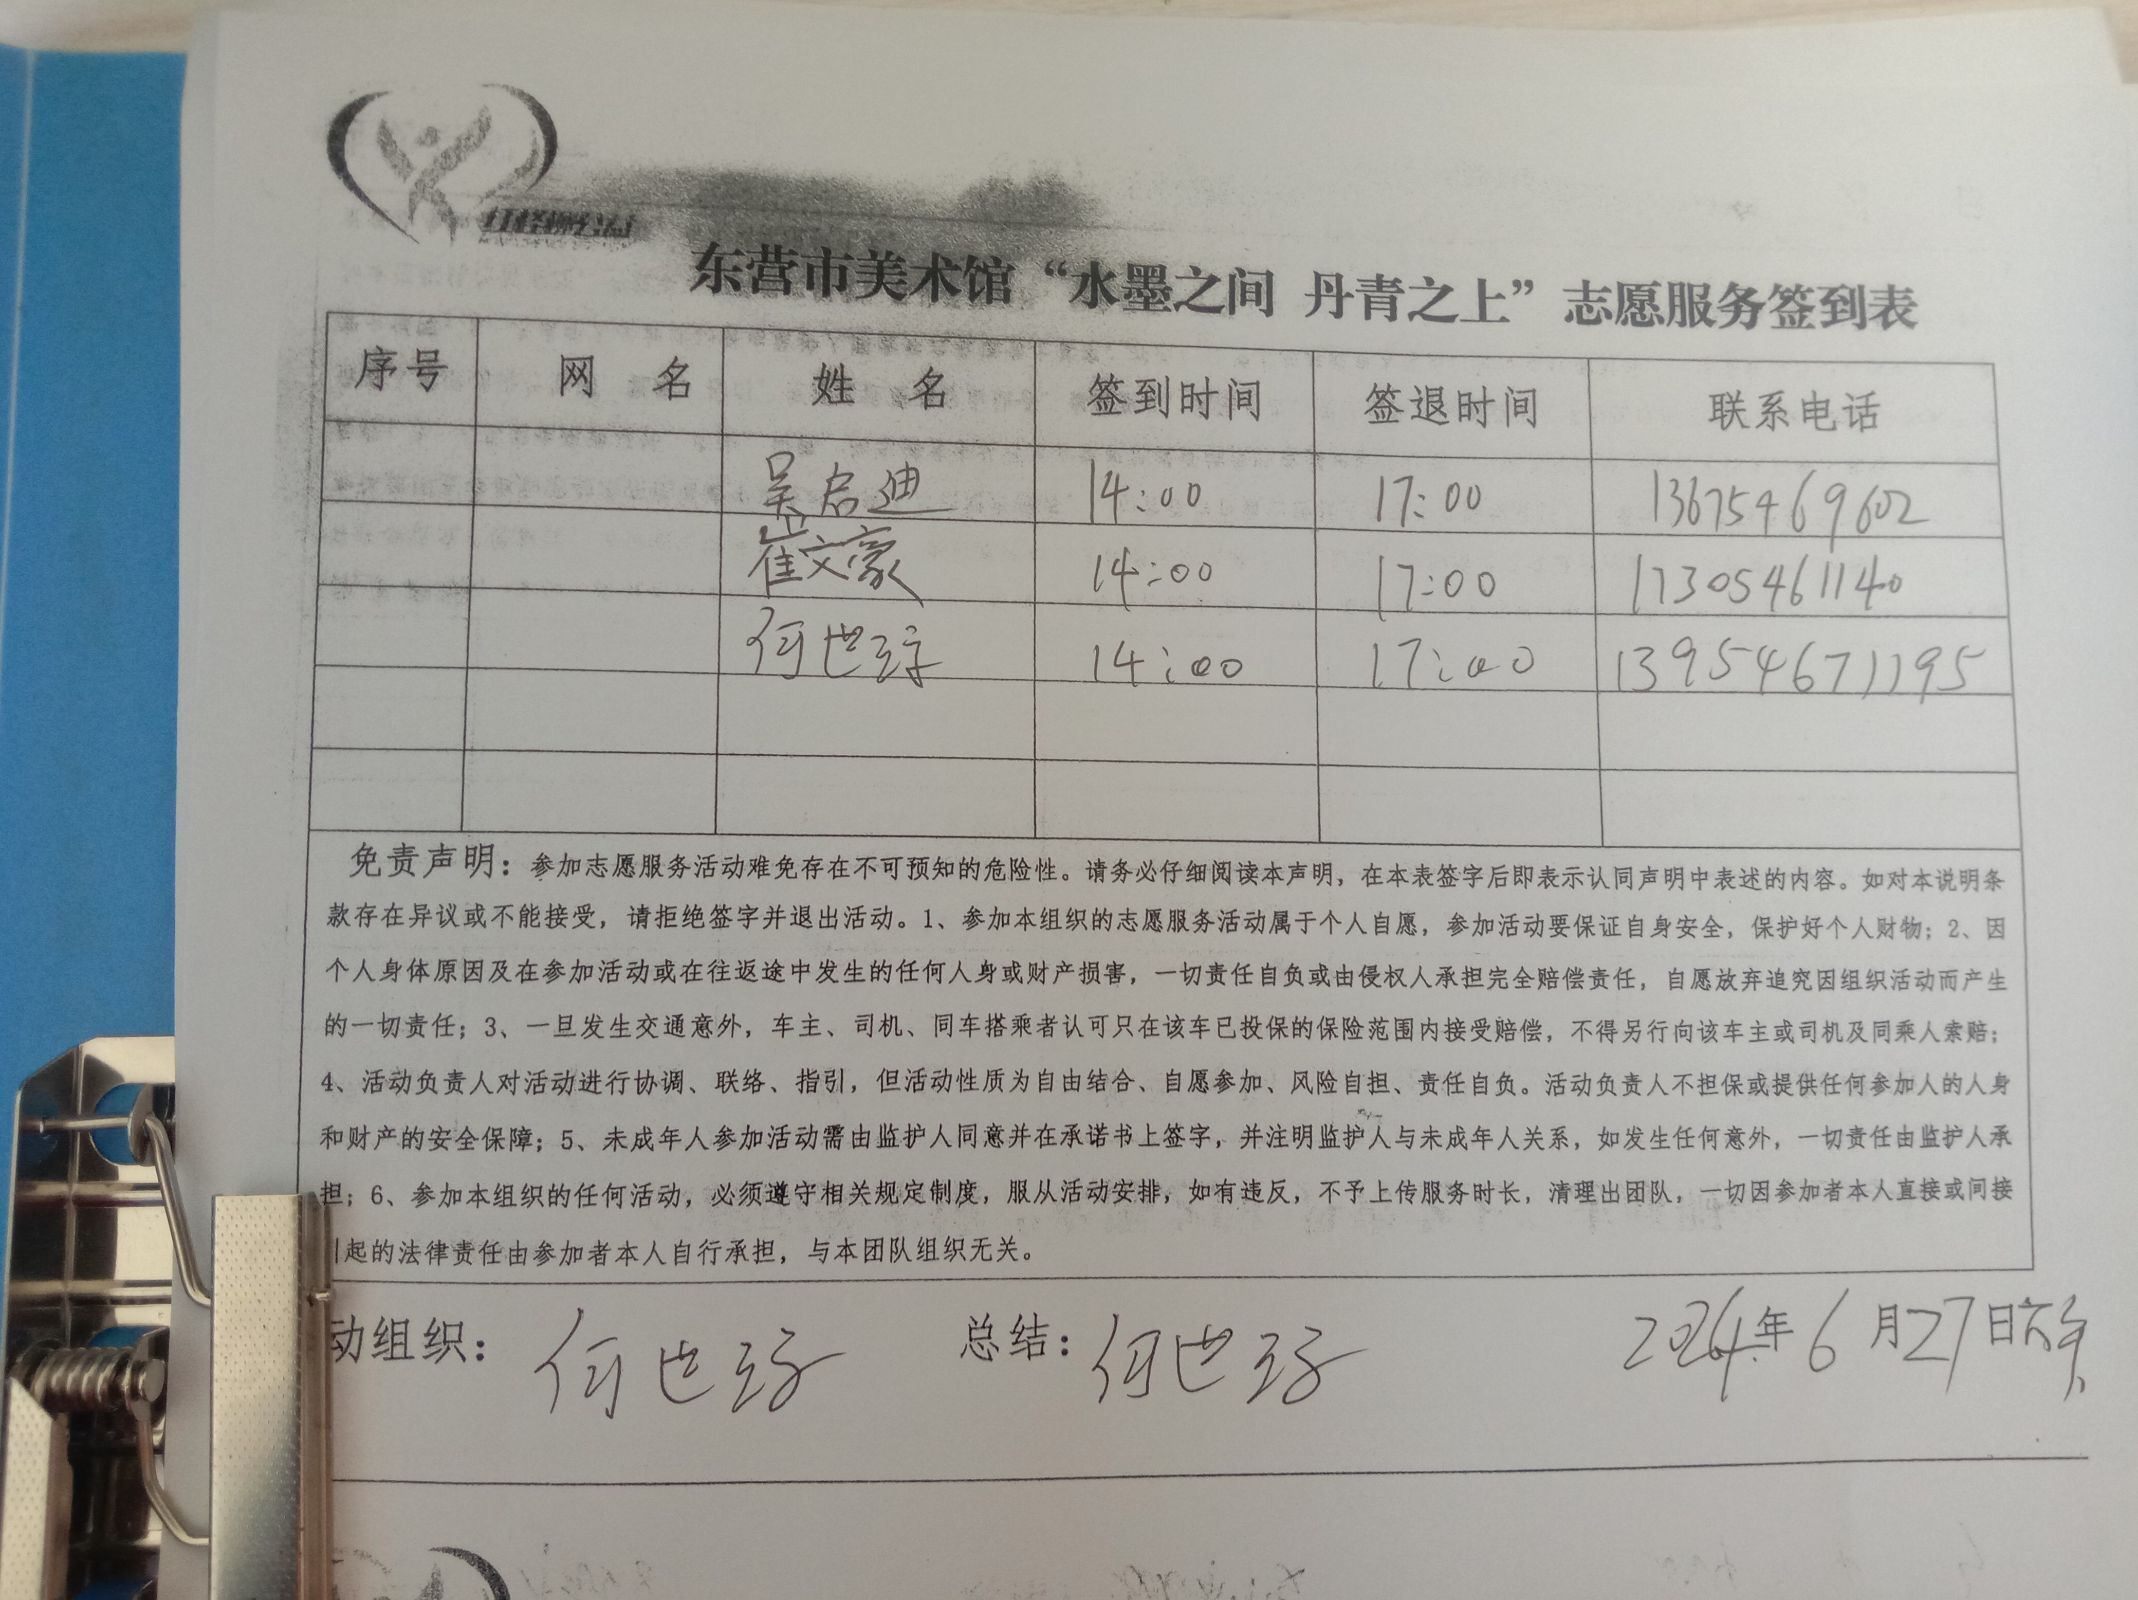 东营市美术馆“水墨之间 丹青之上”志愿服务签到表
序号 网 名 姓 名 签到时间 签退时间 联系电话
吴启迪 14:00 17:00 13675469602
崔文豪 14:00 17:00 17305461140
何世 14:00 17:00 13954671195
免责声明：参加志愿服务活动难免存在不可预知的危险性。请务必仔细阅读本声明，在本表签字后即表示认同声明中表述的内容。如对本说明条
款存在异议或不能接受，请拒绝签字并退出活动。1、参加本组织的志愿服务活动属于个人自愿，参加活动要保证自身安全，保护好个人财物；2、因
个人身体原因及在参加活动或在往返途中发生的任何人身或财产损害，一切责任自负或由侵权人承担完全赔偿责任，自愿放弃追究因组织活动而产生
的一切责任；3、一旦发生交通意外，车主、司机、同车搭乘者认可只在该车已投保的保险范围内接受赔偿，不得另行向该车主或司机及同乘人索赔；
4、活动负责人对活动进行协调、联络、指引，但活动性质为自由结合、自愿参加、风险自担、责任自负。活动负责人不担保或提供任何参加人的人身
和财产的安全保障；5、未成年人参加活动需由监护人同意并在承诺书上签字，并注明监护人与未成年人关系，如发生任何意外，一切责任由监护人承
担；6、参加本组织的任何活动，必须遵守相关规定制度，服从活动安排，如有违反，不予上传服务时长，清理出团队，一切因参加者本人直接或间接
引起的法律责任由参加者本人自行承担，与本团队组织无关。
动组织： 何世 总结： 何世 年 6 月 27 日